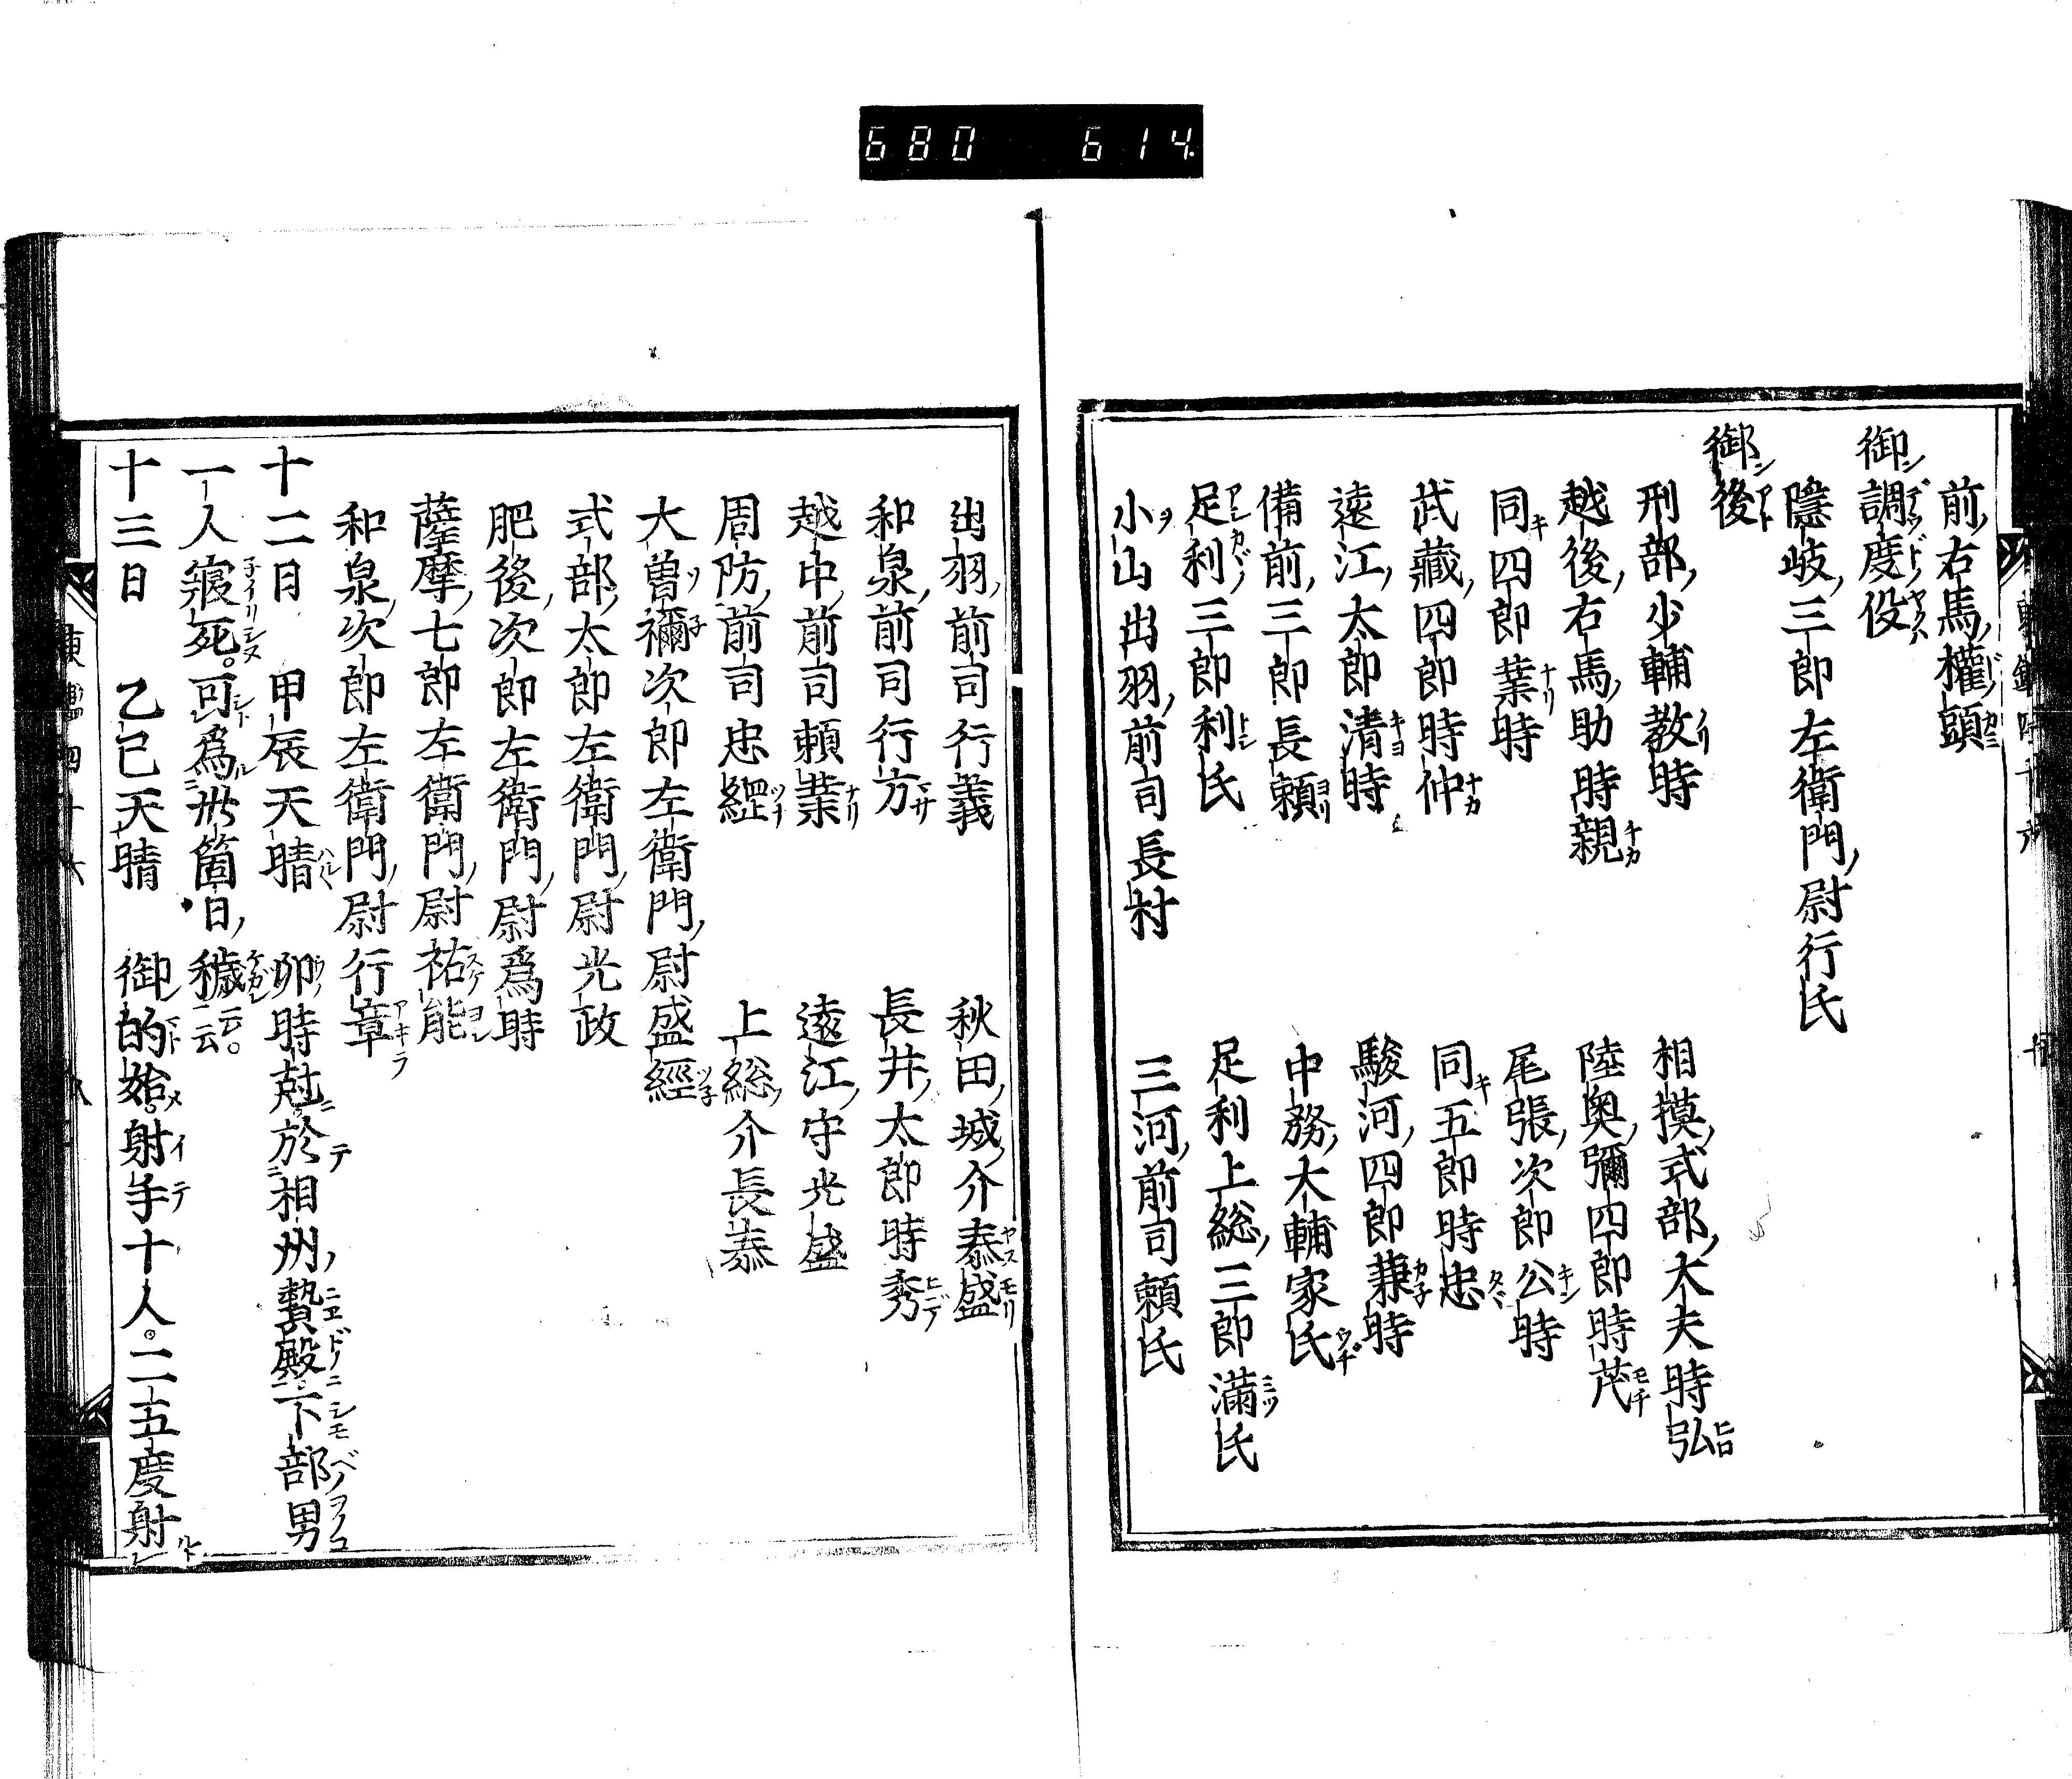 680 614
前右馬權頭
御調度役
隱岐三郎左衛門尉行氏
御後
刑部少輔教時 相摸式部大夫時弘
越後右馬助時親 陸奥彌四郎時茂
同四郎業時 尾張次郎公時
武藏四郎時仲 同五郎時忠
遠江太郎清時 駿河四郎兼時
備前三郎長頼 中務大輔家氏
足利三郎利氏 足利上総三郎滿氏
小山出羽前司長村 三河前司頼氏
出羽前司行義 秋田城介泰盛
和泉前司行方 長井太郎時秀
越中前司頼業 遠江守光盛
周防前司忠經 上総介長泰
大曽禰次郎左衛門尉盛經
式部太郎左衛門尉光政
肥後次郎左衛門尉爲時
薩摩七郎左衛門尉祐能
和泉次郎左衛門尉行章
十二日 甲辰天晴 卯時尅於相州贄殿下部男
一人寢死。可爲卅箇日穢云云。
十三日 乙巳天晴 御的始。射手十人。二五度射